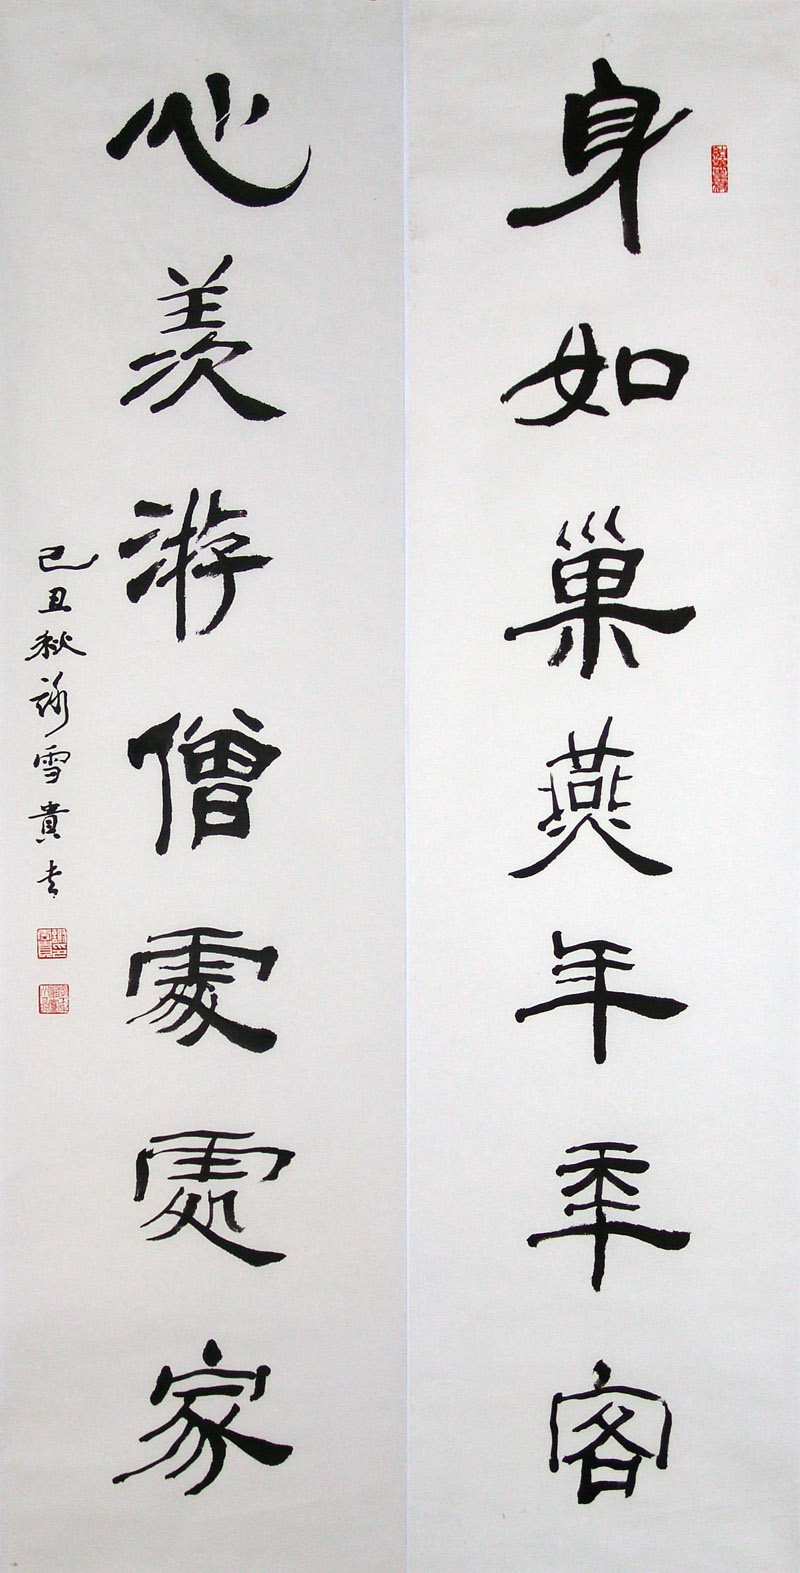 身如巢燕年年客
心羨游僧處處家
己丑秋詠雪貴書